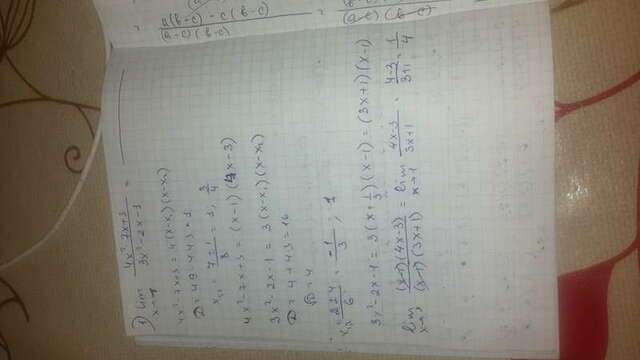 a(b-c)-c(b-c)
(a-c)(b-c)
=
(a-c)(b-c)
1) lim x→1 4x²-7x+3 / 3x²-2x-1 =
4x²-7x+3=4(x-x₁)(x-x₂)
x₁,₂ = 7±1 / 8 = 1; 3/4
4x²-7x+3=(x-1)(4x-3)
3x²-2x-1=3(x-x₁)(x-x₂)
D=4+4·3=16
√D=4
x₁,₂ = 2±4 / 6 = -1/3; 1
3x²-2x-1=3(x+1/3)(x-1)=(3x+1)(x-1)
lim x→1 (x-1)(4x-3) / (x-1)(3x+1) = lim x→1 4x-3 / 3x+1 = 4-3 / 3+1 = 1/4